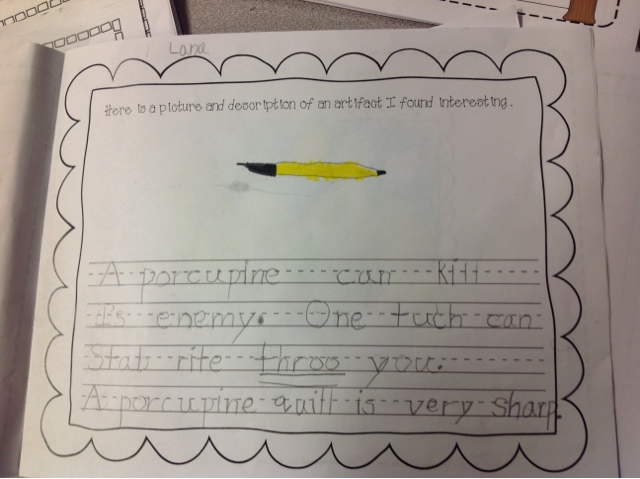 Lana
Here is a picture and description of an artifact I found interesting.
A porcupine can kill
it's enemy. One tuch can
Stab rite throo you.
A porcupine quill is very sharp.